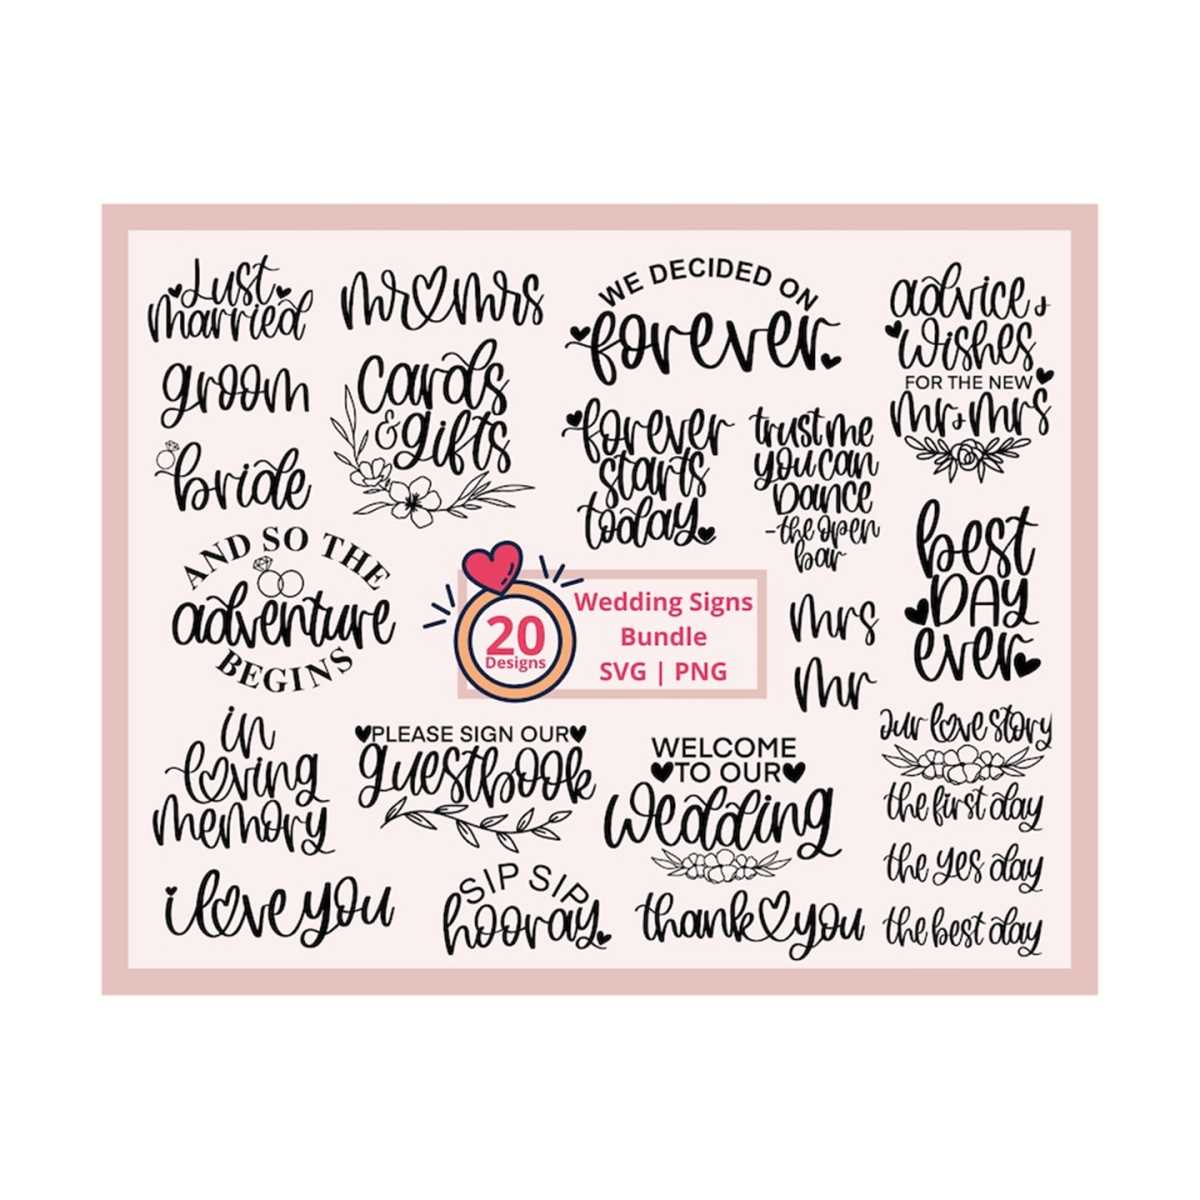 Just
married
mr mrs
WE DECIDED ON
forever
advice &
wishes
FOR THE NEW
mr & mrs
groom
cards
& gifts
bride
forever
starts
today
trust me
you can
DANCE
-the open
bar
AND SO THE
adventure
BEGINS
20
Designs
Wedding Signs
Bundle
SVG | PNG
mrs
mr
best
DAY
ever
in
loving
memory
PLEASE SIGN OUR
guestbook
WELCOME
TO OUR
wedding
our love story
the first day
the yes day
the best day
i love you
SIP SIP
hooray
thank you